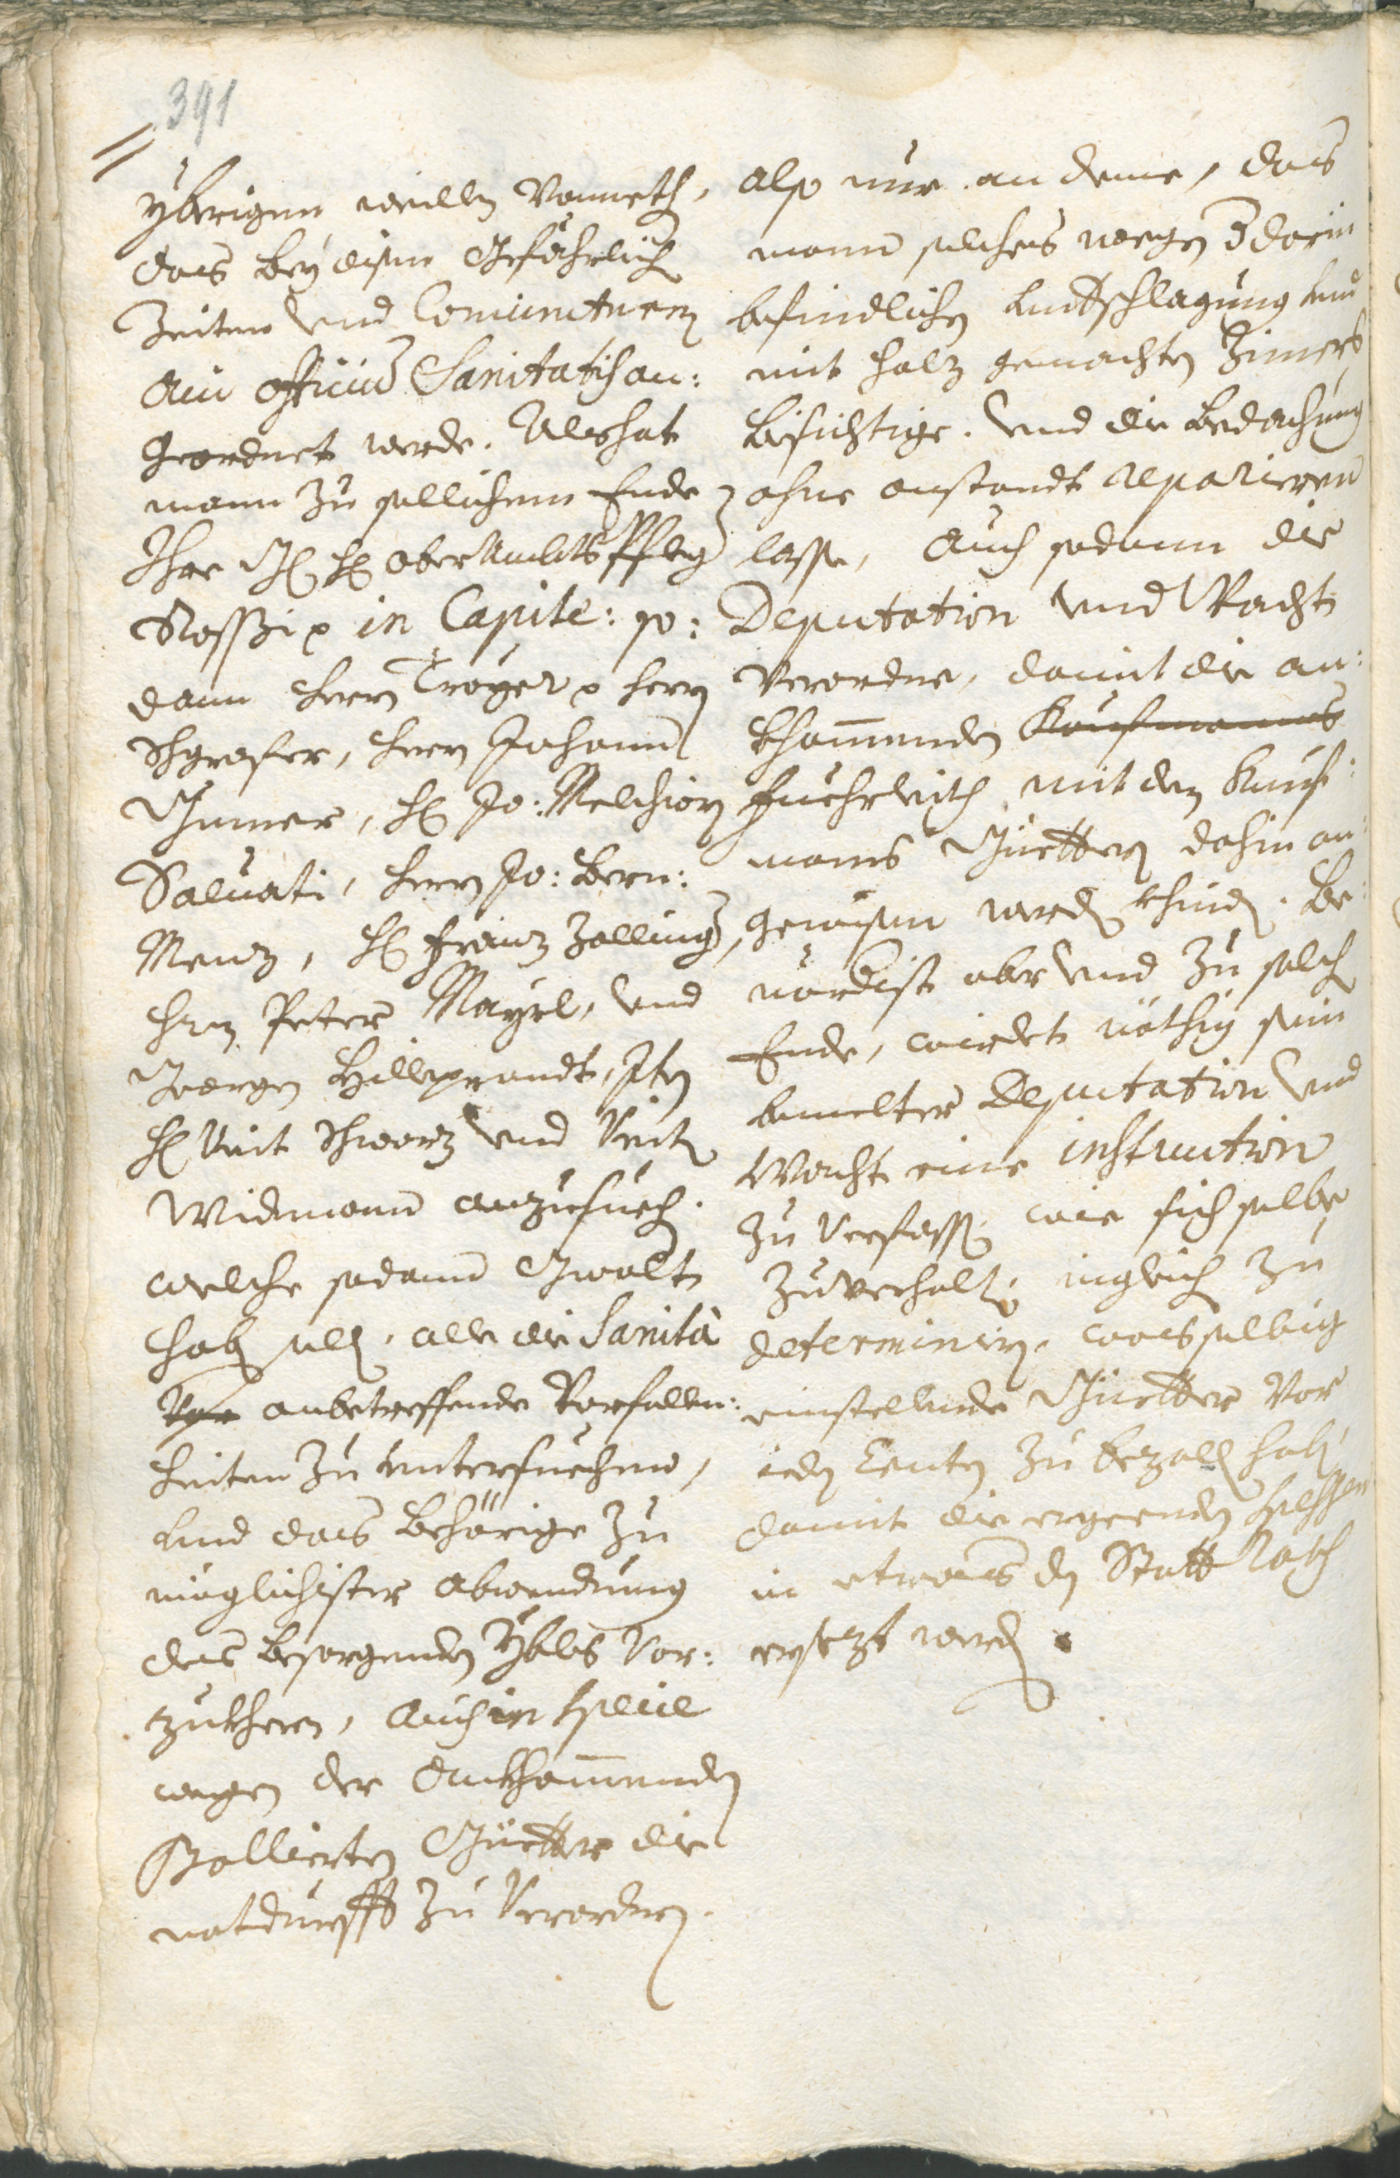 391
yberigen weillen Vonneth,
das bey disen Gefährlich
Zeiten Vnd Coniuncturen
ain officiu Sanitatis an:
Geordnet werde. Als hat
mann Zu sollichem Ende
Ihr H: H: Ober Ambts Pfleg
Rossi p in Capite: so:
dann Herrn Troyer p Herrn
Schgrafer, Herrn Johann
Gumer, H: Jo: Melchiorn
Saluati, Herrn Jo: Bern:
Menz, H: Franz Zalling,
Hrn Peter Mayrl, Vnd
Georgen Hilleprandt, Itm
H: Veit Schwarz Vnd Veith
Widmann anzusuech.
welche sodann Gwalt
hab soll, alle die Sanità
anbetreffende Vorfallen:
heiten Zu Untersuechen,
Und das Behörige Zu
müglichister Abwendung
des besorgenden Ybels Vor:
zukhern, Auch in specie
wegen der Ankhommenden
Ballierten Güetter die
notdurfft Zu Verordnen.
also nur an deme, das
mann solches wegen darin
befindlichen Endtschlagung Und
mit Holz gemachten Zimers
besichtige. Vnd die Bedachung
ohne anstandt reparieren
lasse, Auch sodann die
Deputation Vnd Wacht
Verordne, damit die an:
khommenden Kaufmanns
Fuehrleith mit den Kauf:
mans Güettern dahin an:
gewisen werd khind. Be:
nördist aber Vnd Zu solch
Ende, wirdet nöthig sein
bemelter Deputation Vnd
Wacht eine instruction
Zu Verfass, wie sich selbe
Zuverhalt, ingleich Zu
determiniern, was selbig
einstellende Güetter Vor
iedn Centn Zu bezalln hab,
damit die ergeenden Spesen
in etwas dn Statt Rath
ersezt werd.